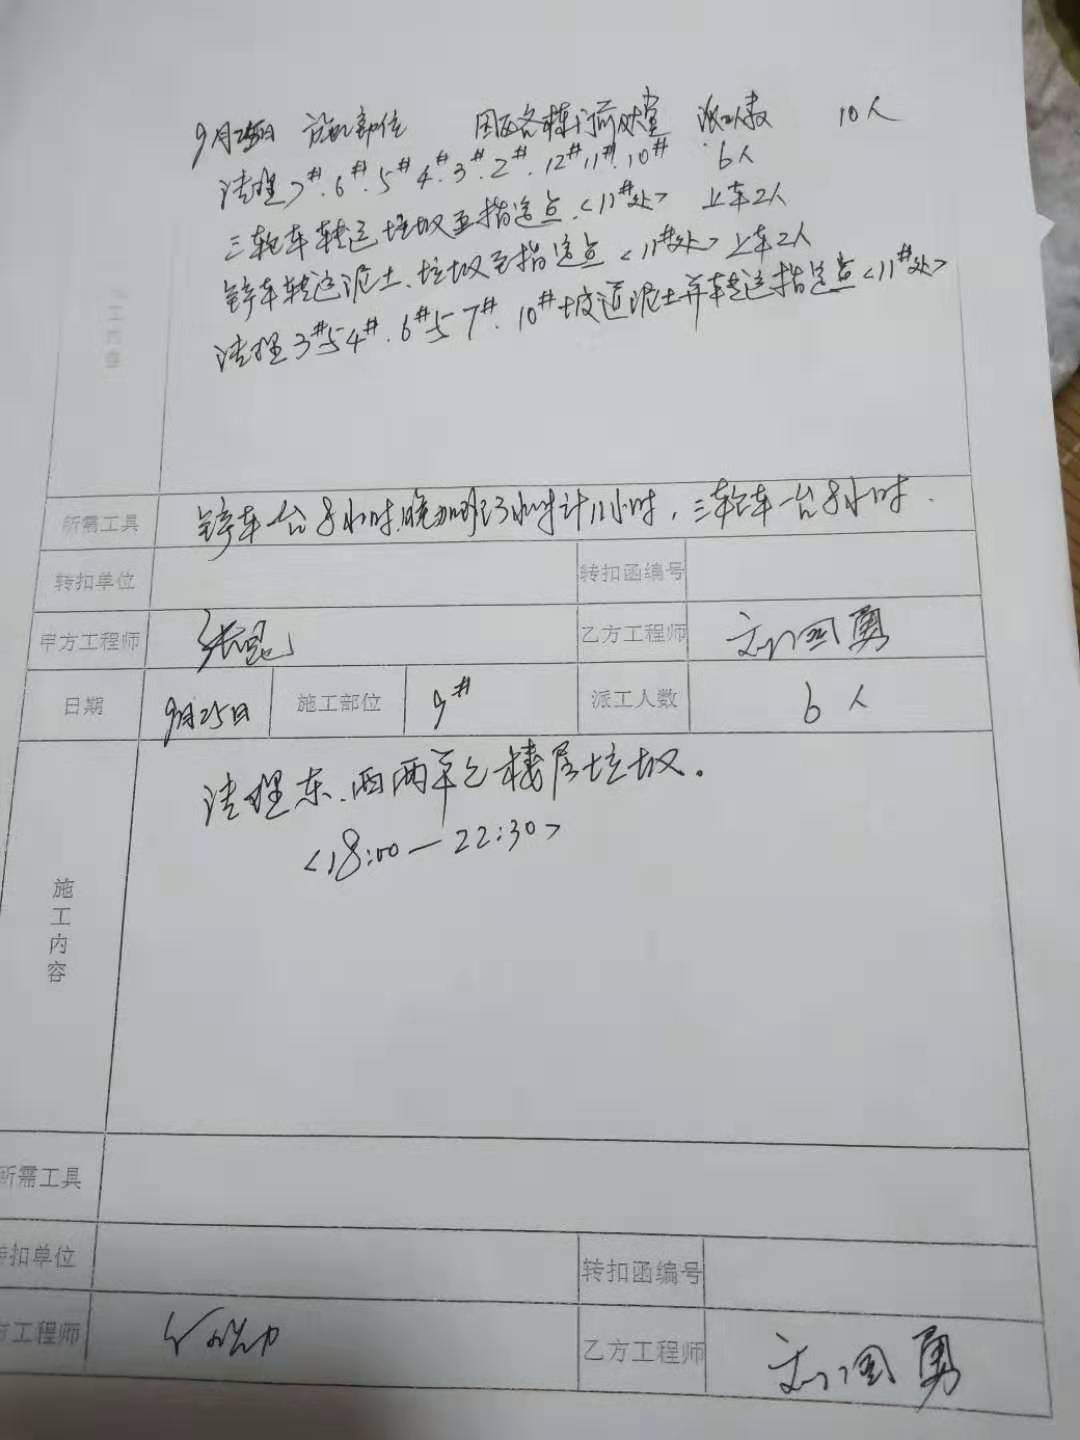 9月25日 施工部位 园区各栋门前及大堂 派工人数 10人
清理7#.6#.5#4#.3#.2#.12#11#.10# 6人
三轮车转运垃圾至指定点.<11#处> 上车2人
铲车转运泥土、垃圾至指定点<11#处>上车2人
清理3#与4#.6#与7#.10#坡道泥土并转运指定点<11#处>
工内容
所需工具 铲车一台8小时.晚加班3小时计11小时，三轮车一台8小时.
转扣单位 转扣函编号
甲方工程师 张昆 乙方工程师 刘国勇
日期 9月25日 施工部位 9# 派工人数 6人
施工内容
清理东、西两单元楼层垃圾。
<18:00—22:30>
所需工具
转扣单位 转扣函编号
方工程师 乙方工程师 刘国勇